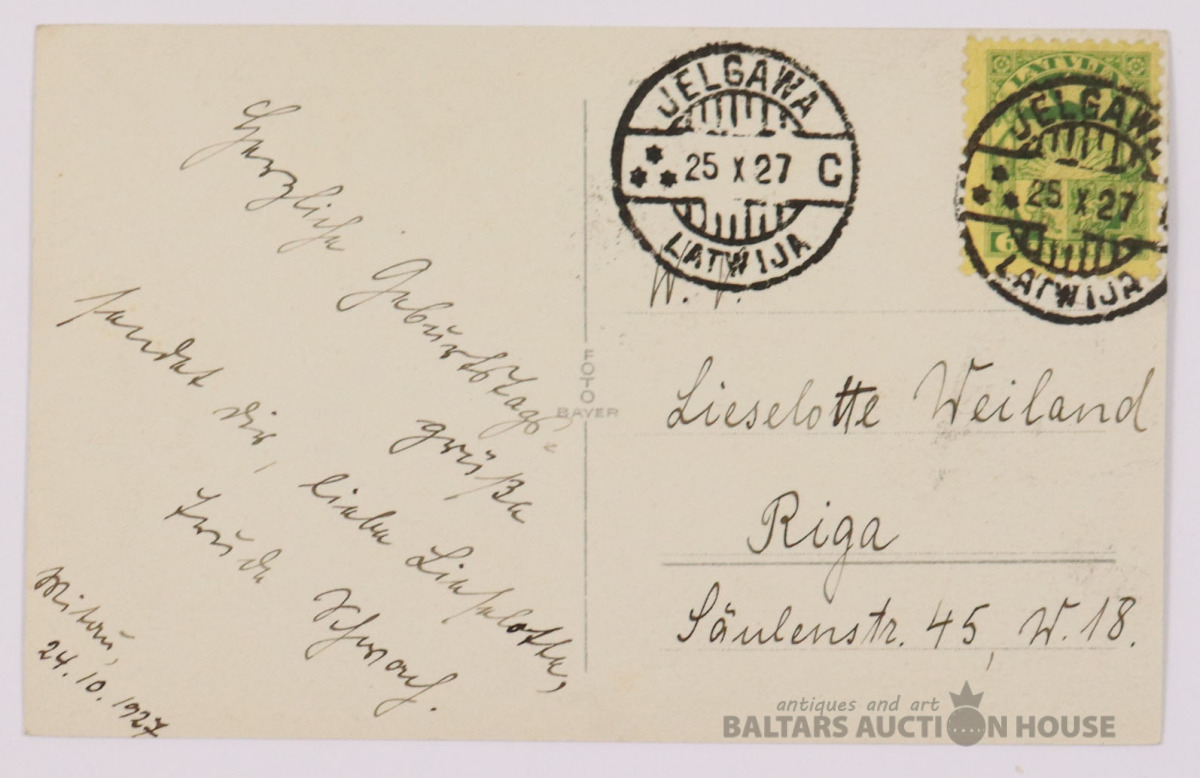 Herzliche
Geburtstags-
grüße
sendet dir,
liebe Lieselotte,
Trude
Mitau,
24. 10. 1927
JELGAWA
25 X 27 C
LATWIJA
LATVIJA
JELGAWA
25 X 27
LATWIJA
6
FOTO
BAYER
Lieselotte Weiland
Riga
Säulenstr. 45, W. 18.
antiques and art
BALTARS AUCTION HOUSE